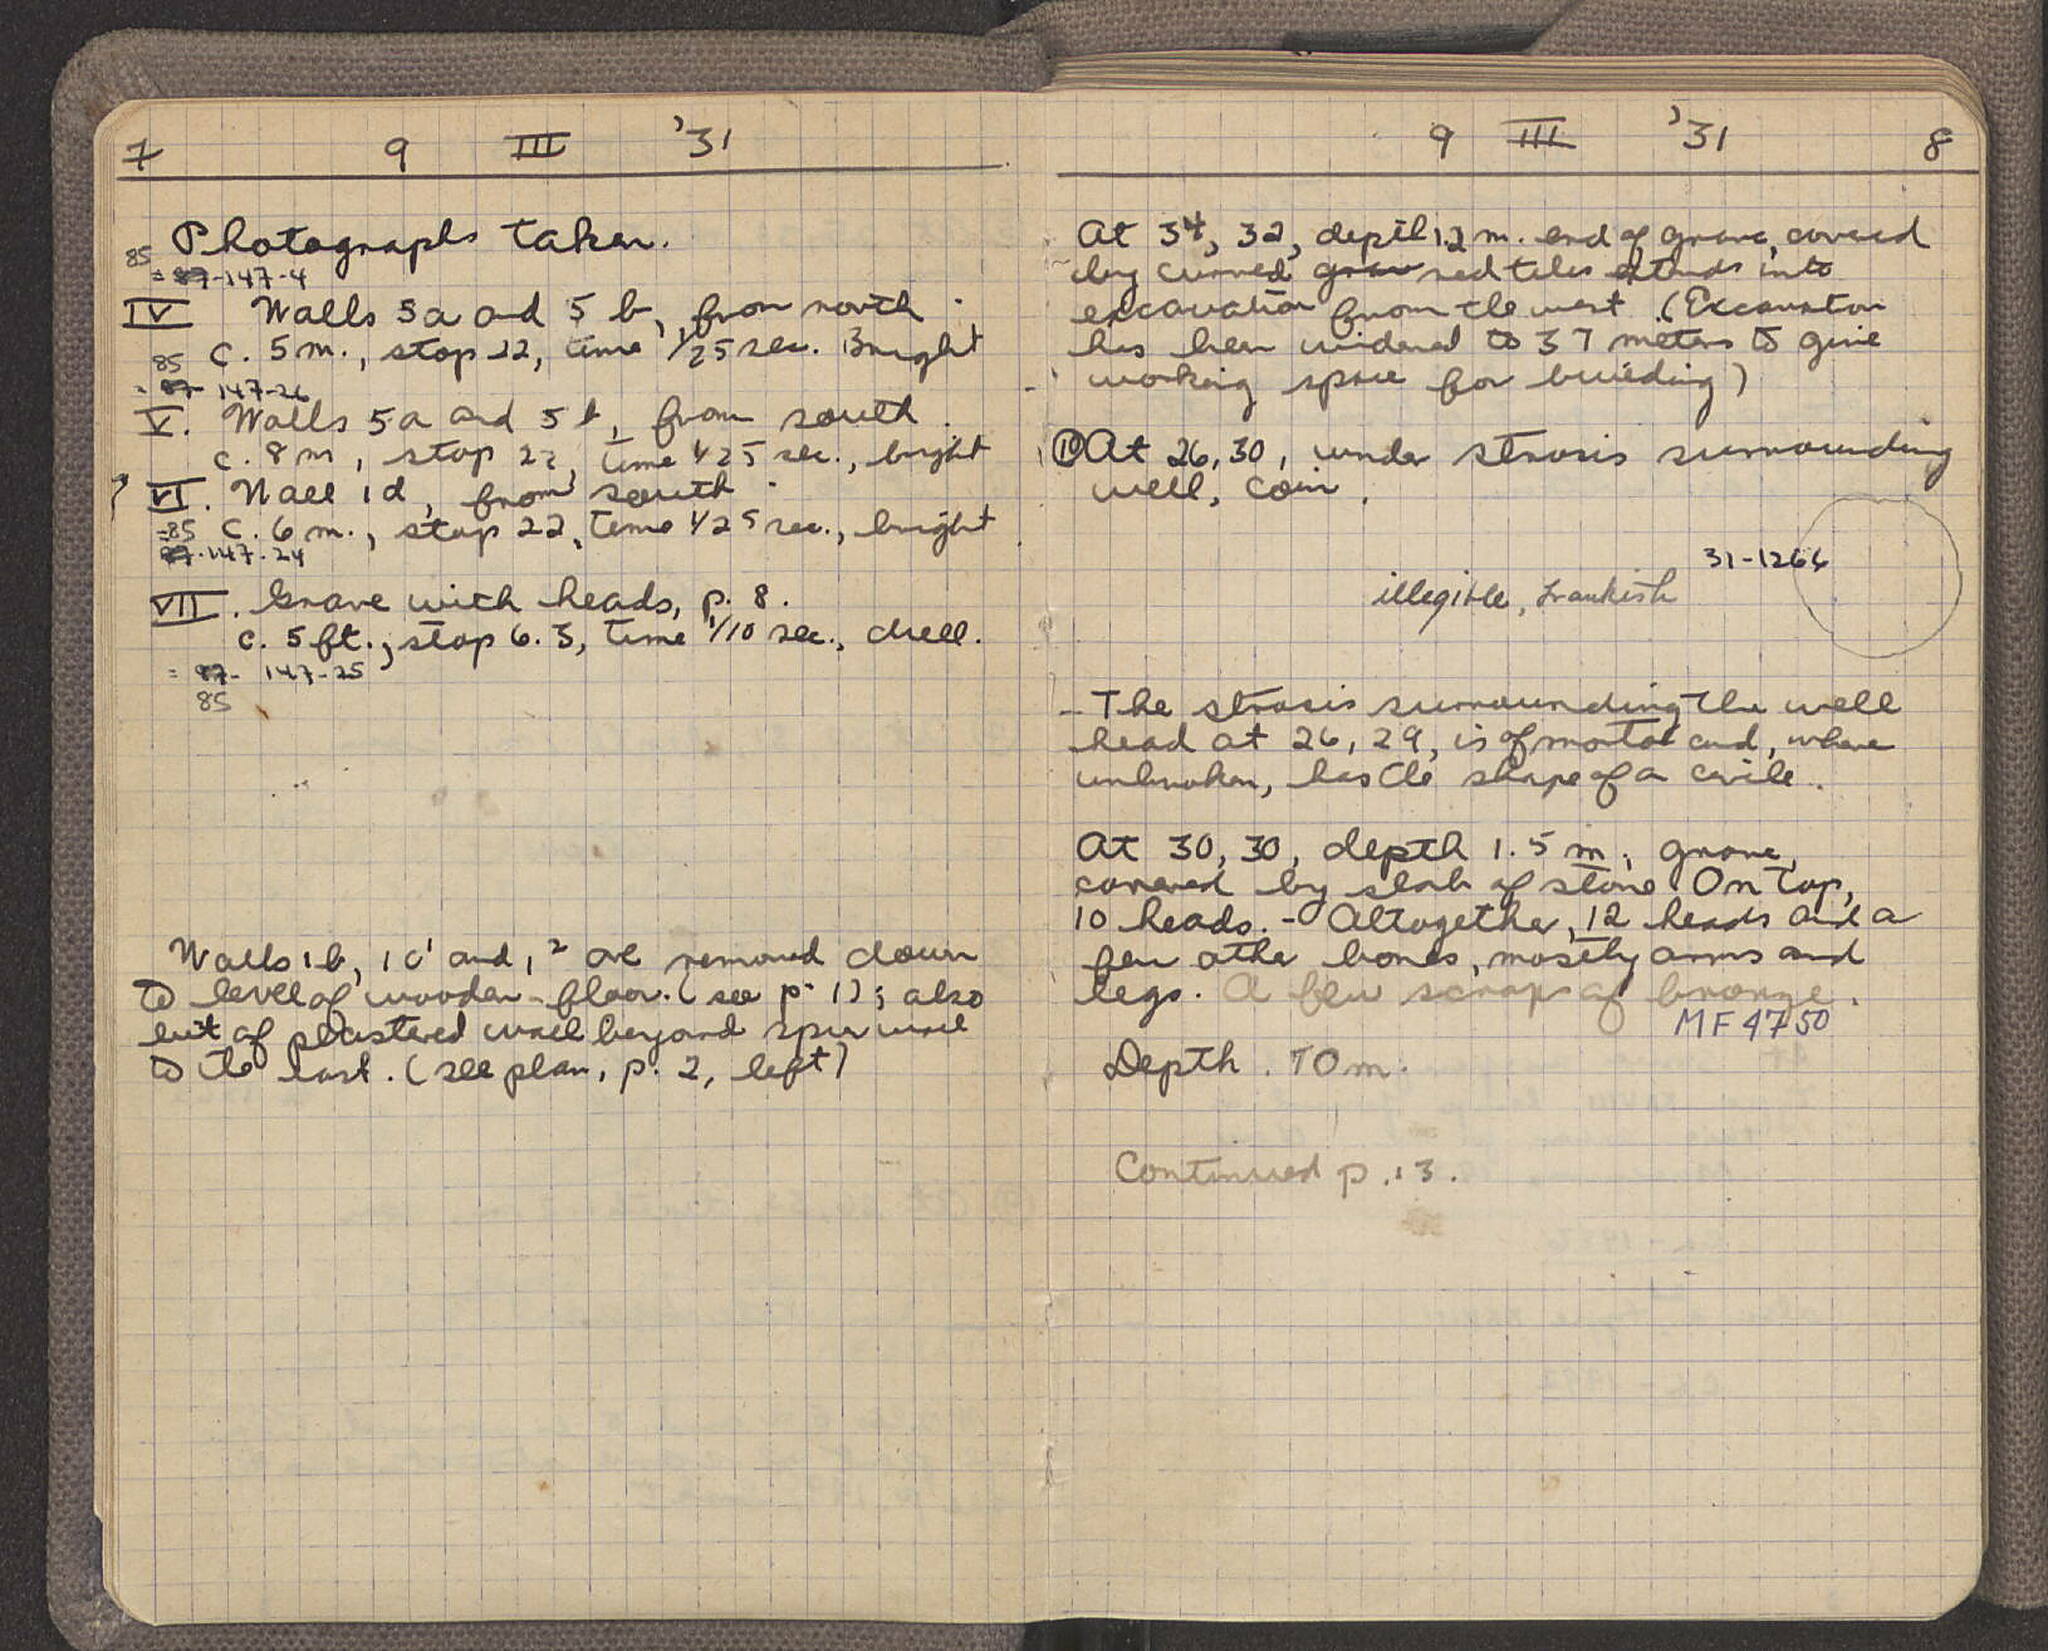 7 9 III '31
Photographs taken.
85
= 87-147-4
IV Walls 5a and 5b, from north.
c. 5m., stop 22, time 1/25 sec. Bright
85
= 87-147-26
V. Walls 5a and 5b, from south.
c. 8m, stop 22, time 1/25 sec., bright
? VI. Wall 1d, from south.
=85 c. 6m., stop 22, time 1/25 sec., bright
87-147-24
VII. Grave with heads, p. 8.
c. 5ft., stop 6.3, time 1/10 sec., dull.
= 87- 147-25
85
Walls 1b, 1c' and 1² are removed down
to level of wooden floor. (see p. 1); also
bit of plastered wall beyond spur wall
to the east. (see plan, p. 2, left)
9 III '31 8
At 34, 32, depth 1.2 m. end of grave, covered
by curved grav red tiles extends into
excavation from the west. (Excavation
has been widened to 37 meters to give
working space for building)
10 At 26, 30, under strosis surrounding
well, coin.
31-1266
illegible, Frankish
- The strosis surrounding the well
head at 26, 29, is of mortar and, where
unbroken, has the shape of a circle.
At 30, 30, depth 1.5 m., grave,
covered by slab of stone. On top,
10 heads. - Altogether, 12 heads and a
few other bones, mostly arms and
legs. A few scraps of bronze.
MF 4750
Depth .70m.
Continued p. 13.